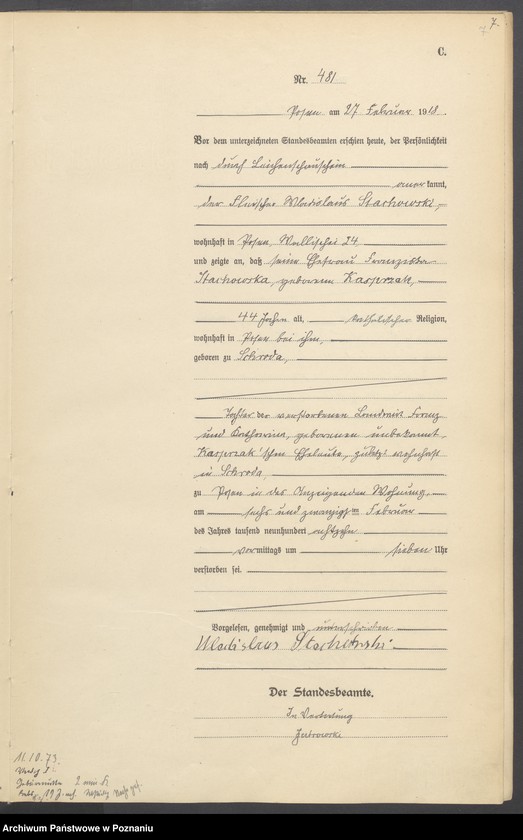 7.
C.
Nr. 481
Posen am 27 Februar 1918.
Vor dem unterzeichneten Standesbeamten erschien heute, der Persönlichkeit
nach durch Leichenschauschein
anerkannt,
der Fleischer Wladislaus Stachowski,
wohnhaft in Posen, Wallischei 24
und zeigte an, daß seine Ehefrau Franziska
Stachowska, geborene Kasprzak,
44 Jahre alt, katholischer Religion,
wohnhaft in Posen bei ihm,
geboren zu Schroda,
Tochter der verstorbenen Franz
und Katharina, geborenen unbekannt
Kasprzak'schen Eheleute, zuletzt wohnhaft
in Schroda,
zu Posen in des Anzeigenden Wohnung
am sechs und zwanzigsten Februar
des Jahres tausend neunhundert achtzehn
vormittags um sieben Uhr
verstorben sei.
Vorgelesen, genehmigt und unterschrieben
Wladislaus Stachowski
Der Standesbeamte.
In Vertretung
11.10.73.
Archiwum Państwowe w Poznaniu